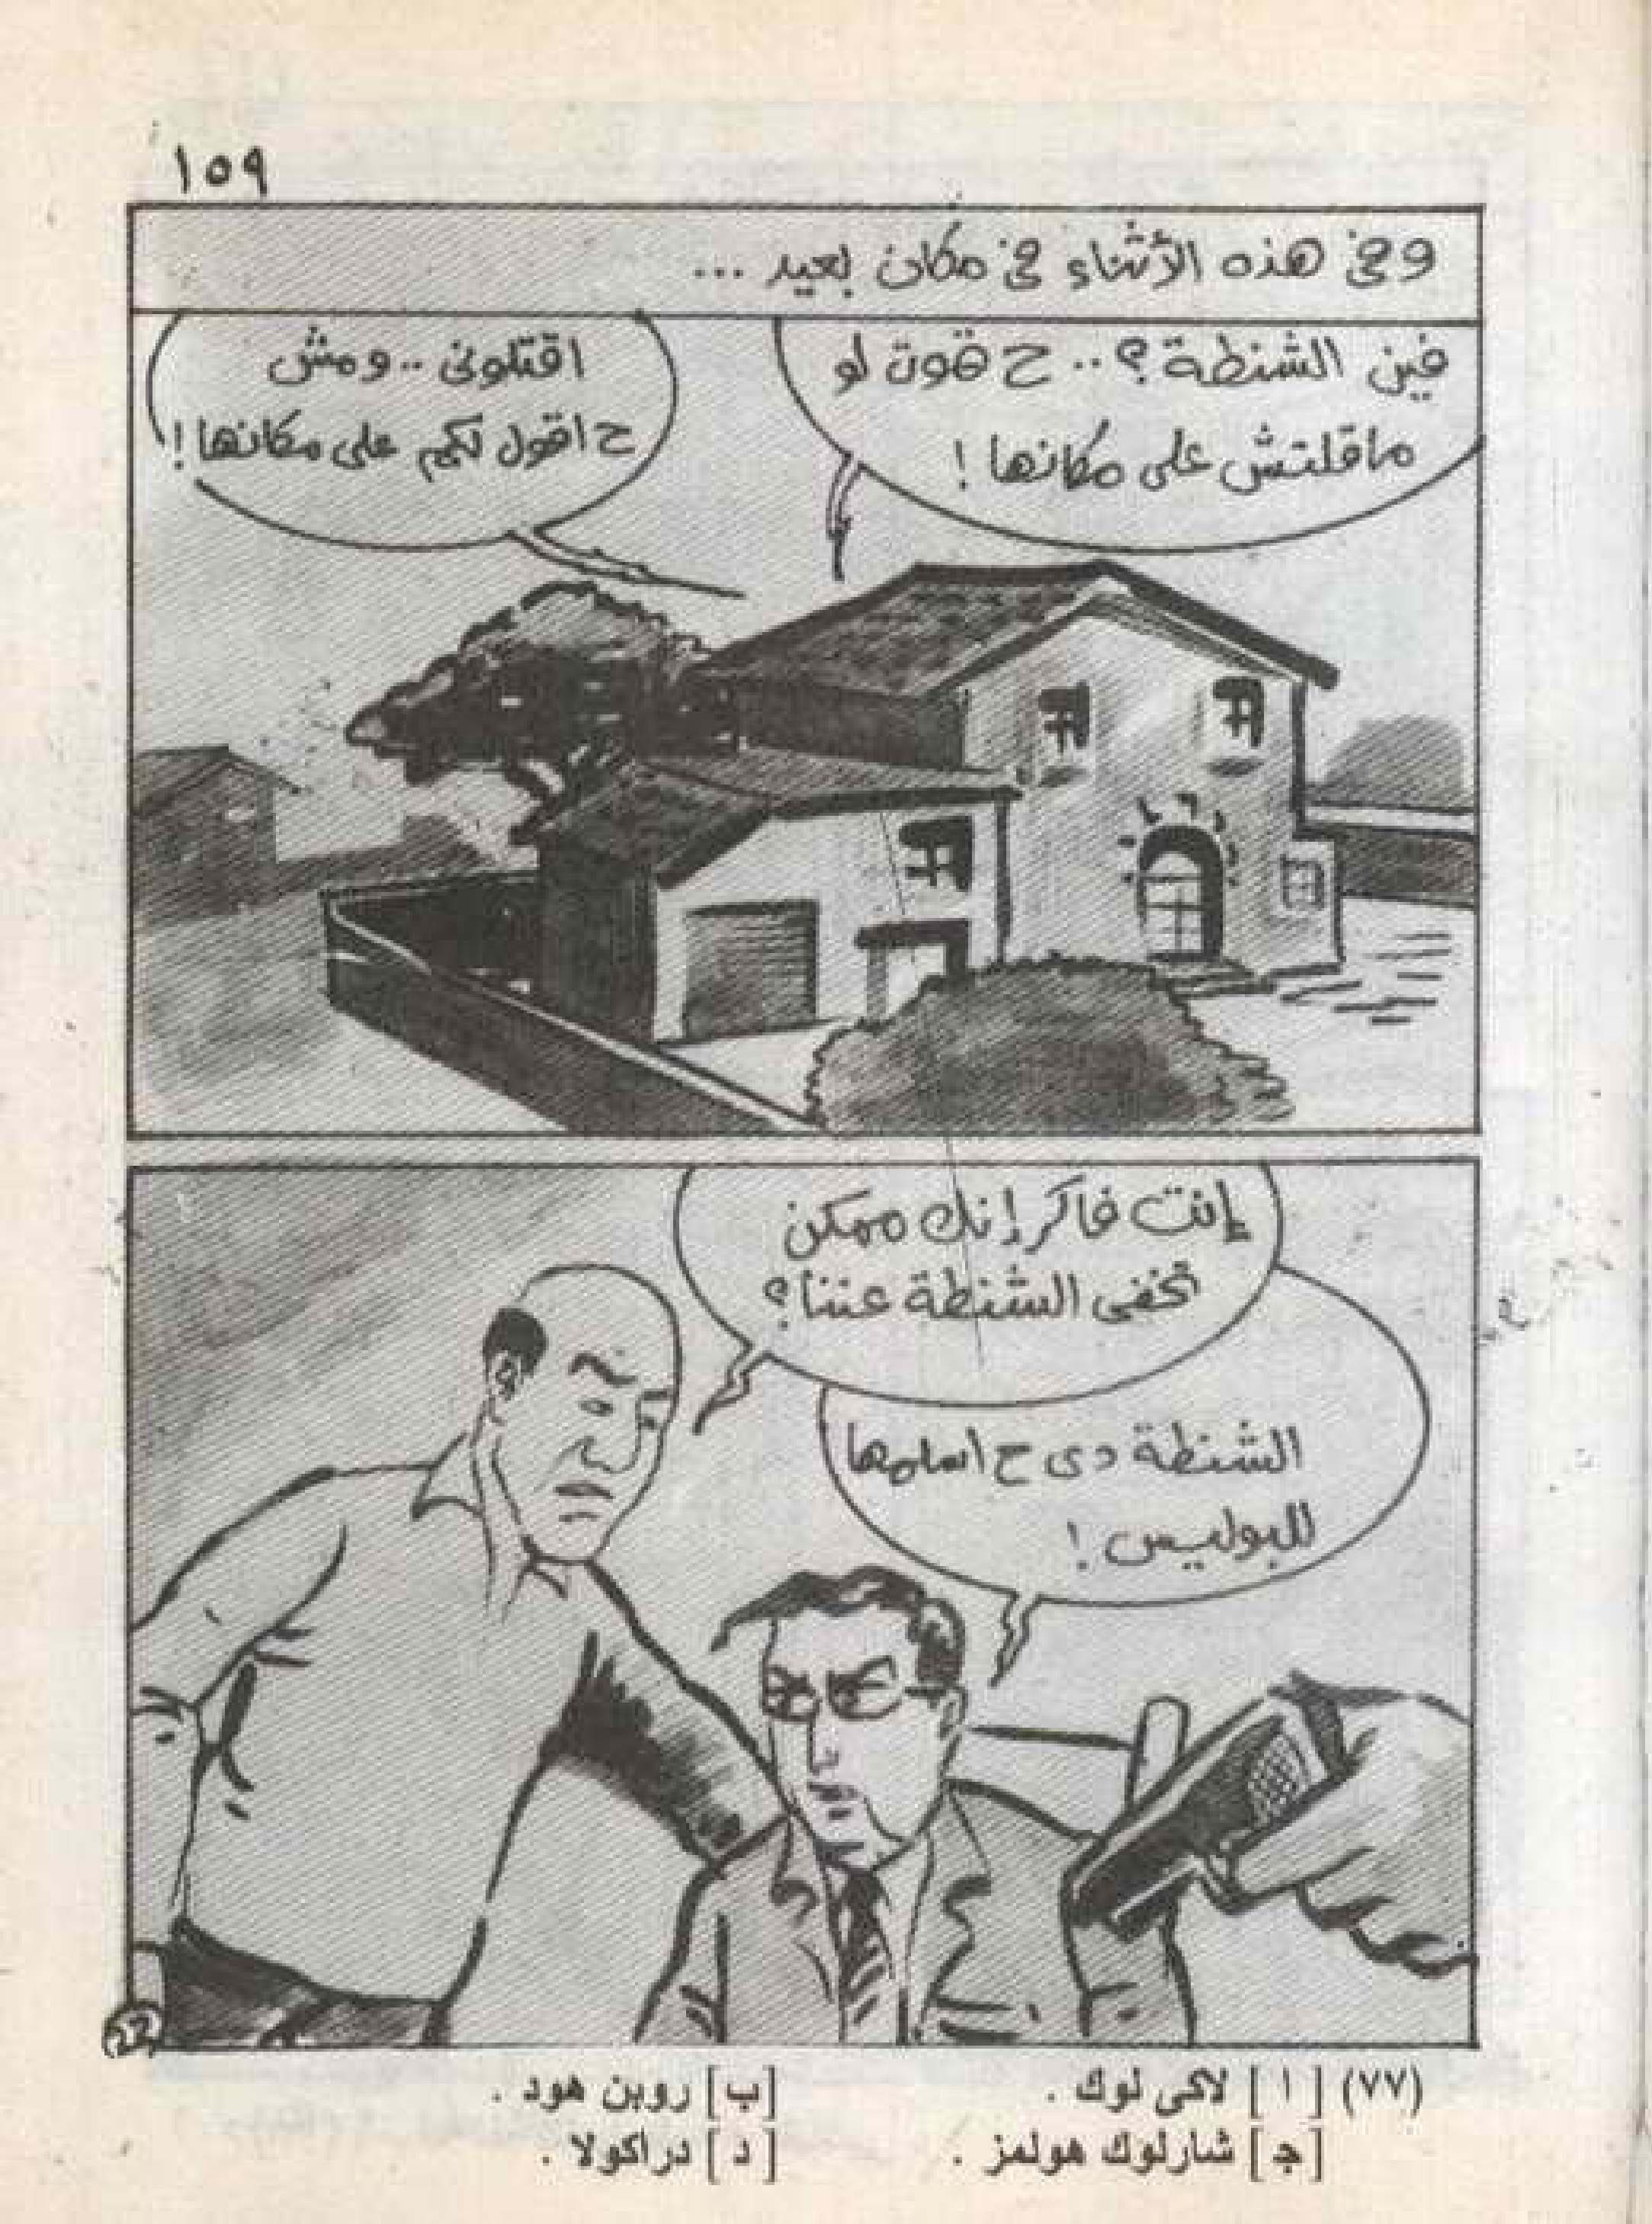 ١٥٩
وفى هذه الأثناء فى مكان بعيد ...
فين الشنطة؟ .. ح تموت لو
ماقلتش على مكانها !
اقتلونى .. ومش
ح اقول لكم على مكانها !
إنت فاكر إنك ممكن
تخفى الشنطة عننا؟
الشنطة دى ح اسلمها
للبوليس !
(٧٧) [ ا ] لاكى لوك . [ب] روبن هود .
[ج] شارلوك هولمز . [ د ] دراكولا .